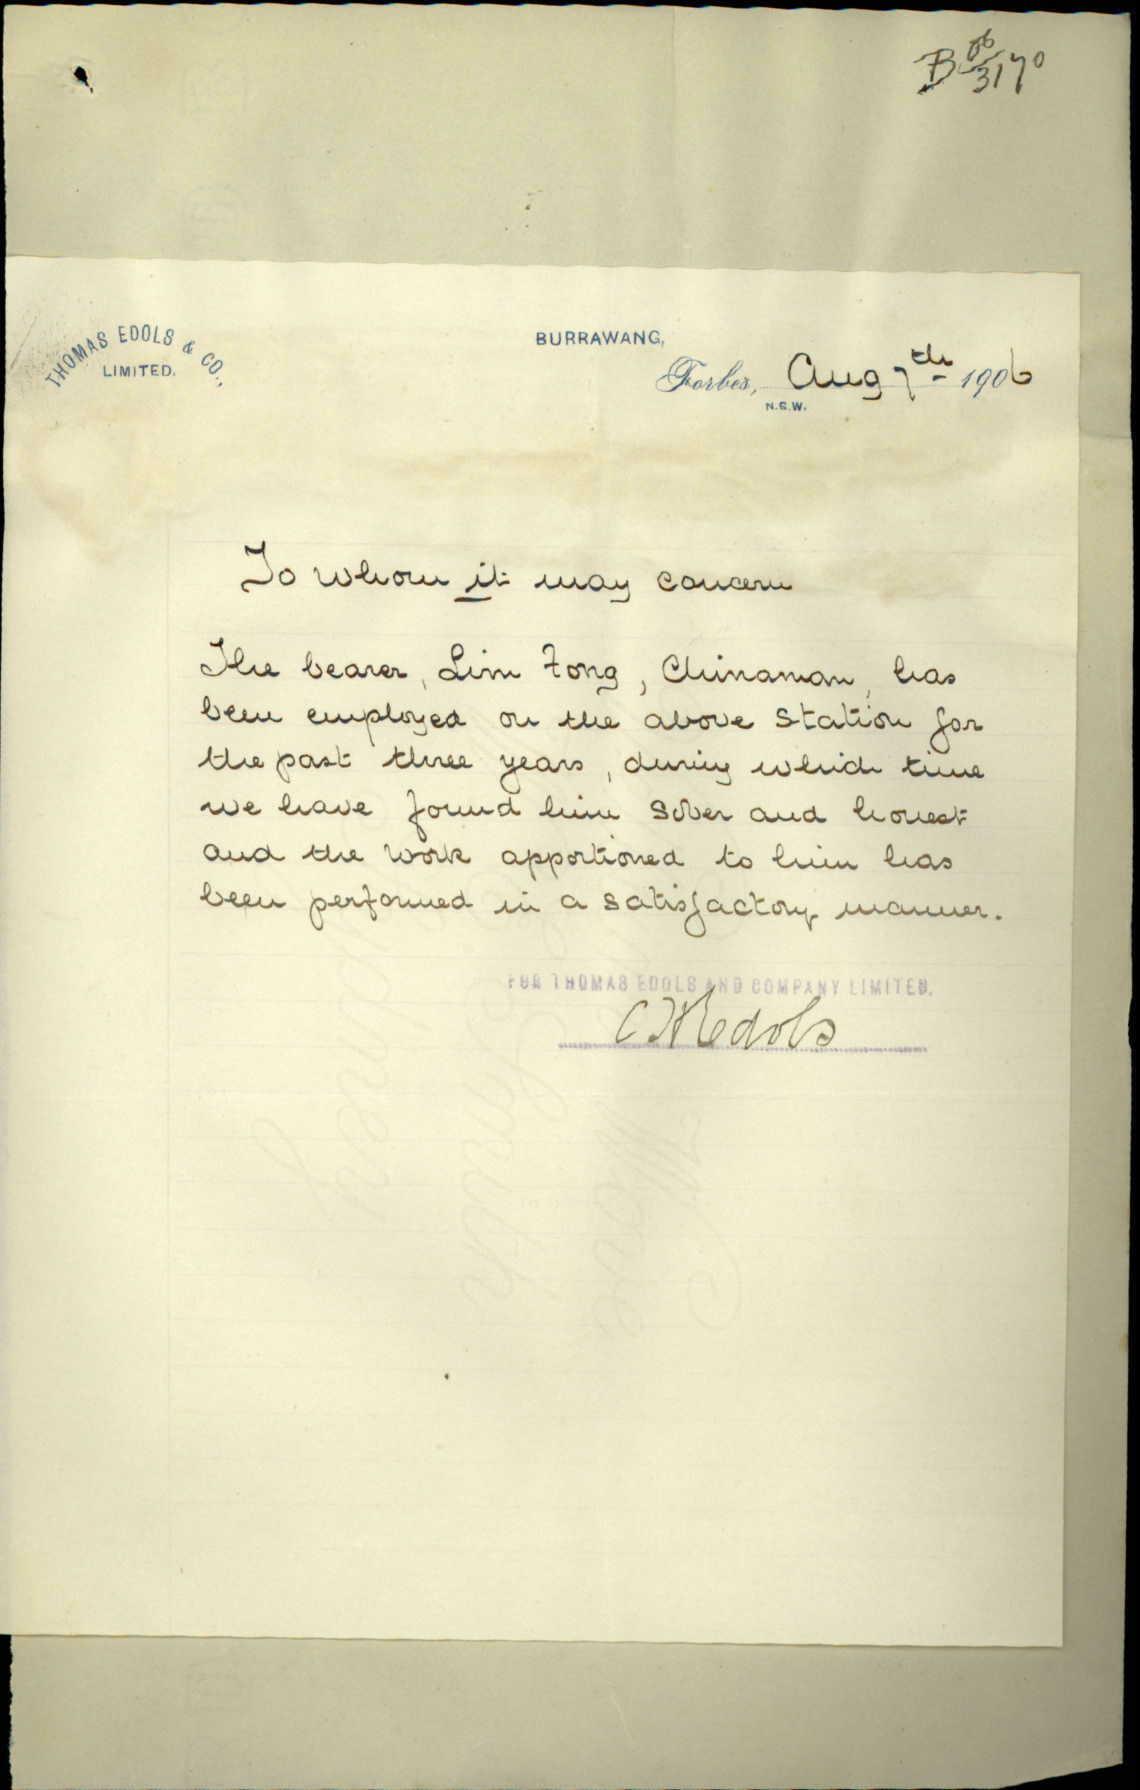 B 06/3170
THOMAS EDOLS & CO.,
LIMITED.
BURRAWANG,
Forbes, Aug 7th 1906
N.S.W.
To whom it may concern
The bearer, Lim Fong, Chinaman, has
been employed on the above Station for
the past three years, during which time
we have found him sober and honest
and the work apportioned to him has
been performed in a satisfactory manner.
FOR THOMAS EDOLS AND COMPANY LIMITED.
Edols